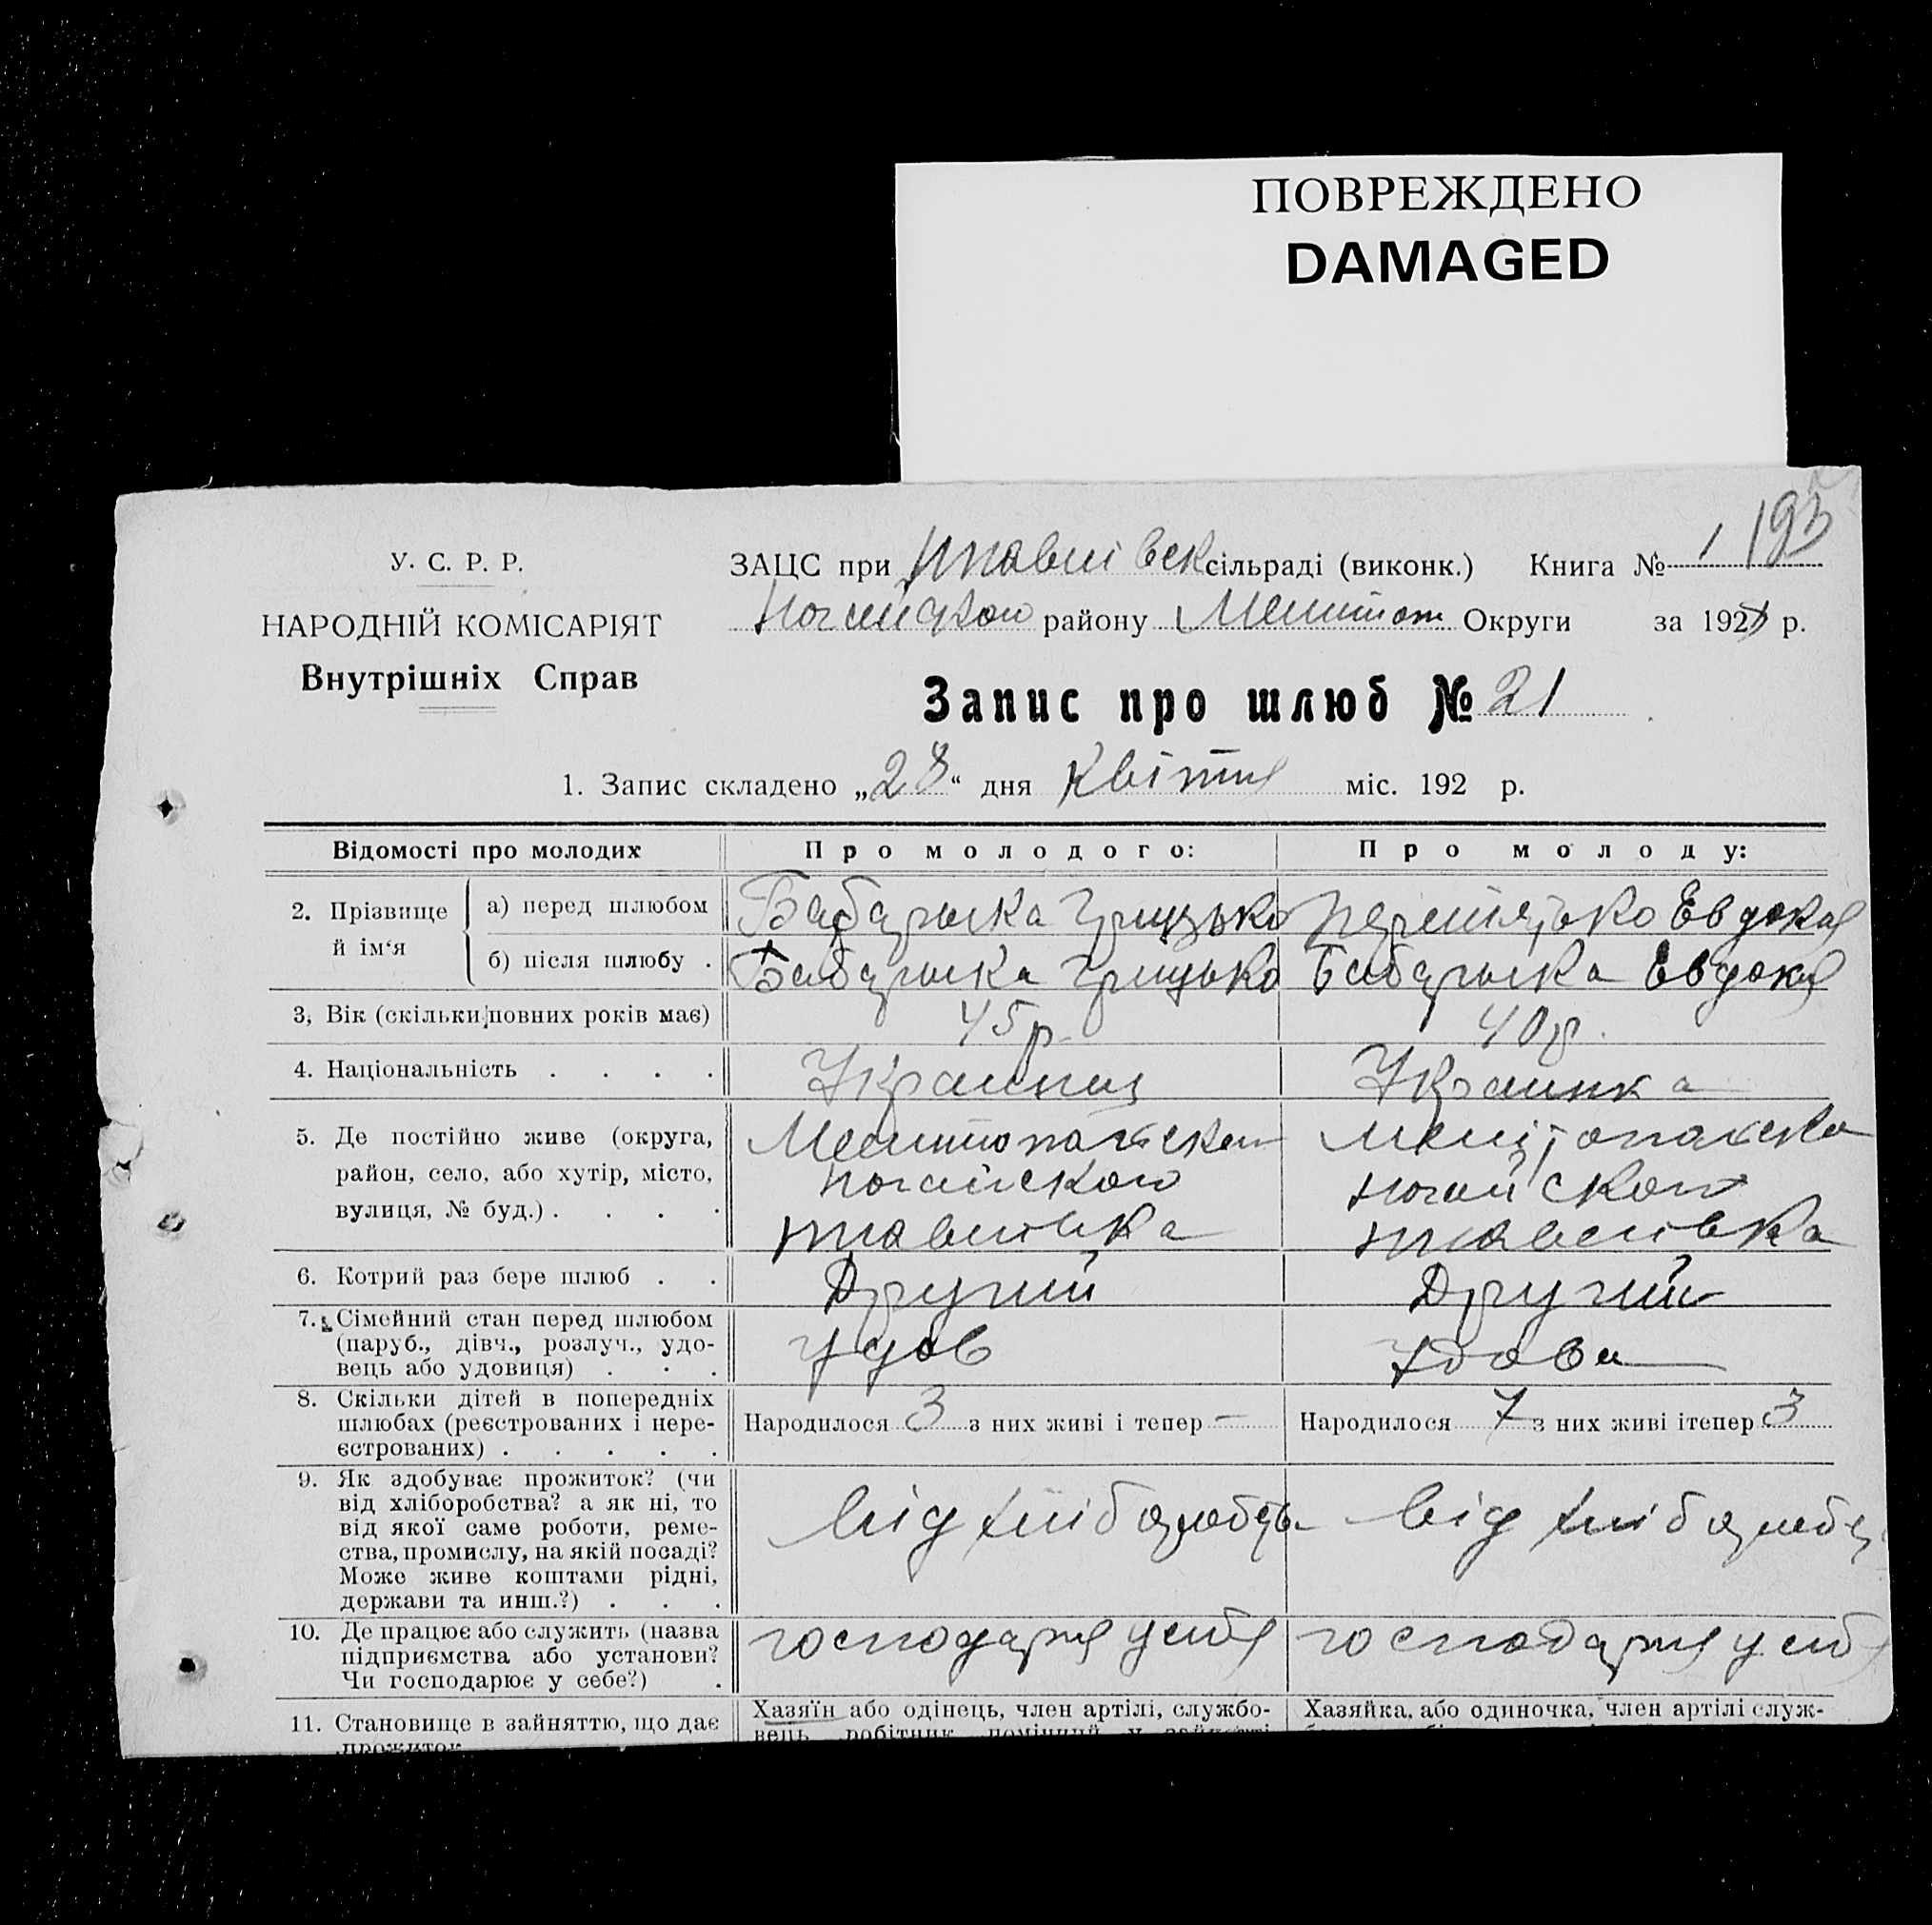 ПОВРЕЖДЕНО
DAMAGED
193
У. С. Р. Р.
НАРОДНІЙ КОМІСАРІЯТ
Внутрішніх Справ
ЗАЦС при сільраді (виконк.) Книга № 1
району Мелитоп Округи за 192 р.
Запис про шлюб № 21
1. Запис складено „28“ дня Квітня міс. 192 р.
Відомості про молодих Про молодого: Про молоду:
2. Прізвище й ім‘я
а) перед шлюбом Грицько Евдокия
б) після шлюбу . Грицько Евдокия
3, Вік (скільки повних років має) 45 р. 40 р.
4. Національність . . . . Украинец Украинка
5. Де постійно живе (округа,
район, село, або хутір, місто, Ногайского Ногайского
вулиця, № буд.) . . . .
6. Котрий раз бере шлюб . . Другий Другий
7. Сімейний стан перед шлюбом
(паруб., дівч., розлуч., удо-
вець або удовиця) . . . Удов Удова
8. Скільки дітей в попередніх
шлюбах (реєстрованих і нере-
єстрованих) . . . . .
Народилося 3 з них живі і тепер —
Народилося 7 з них живі ітепер 3
9. Як здобуває прожиток? (чи
від хліборобства? а як ні, то
від якої саме роботи, реме-
ства, промислу, на якій посаді?
Може живе коштами рідні,
держави та инш.?) . . .
від від
10. Де працює або служить (назва
підприємства або установи?
Чи господарює у себе?) .
господарня у себя господарня у себ
11. Становище в зайняттю, що дає
прожиток
Хазяїн або одінець, член артілі, службо-
вець робітник помічний у зайнятті
Хазяйка, або одиночка, член артілі служ-